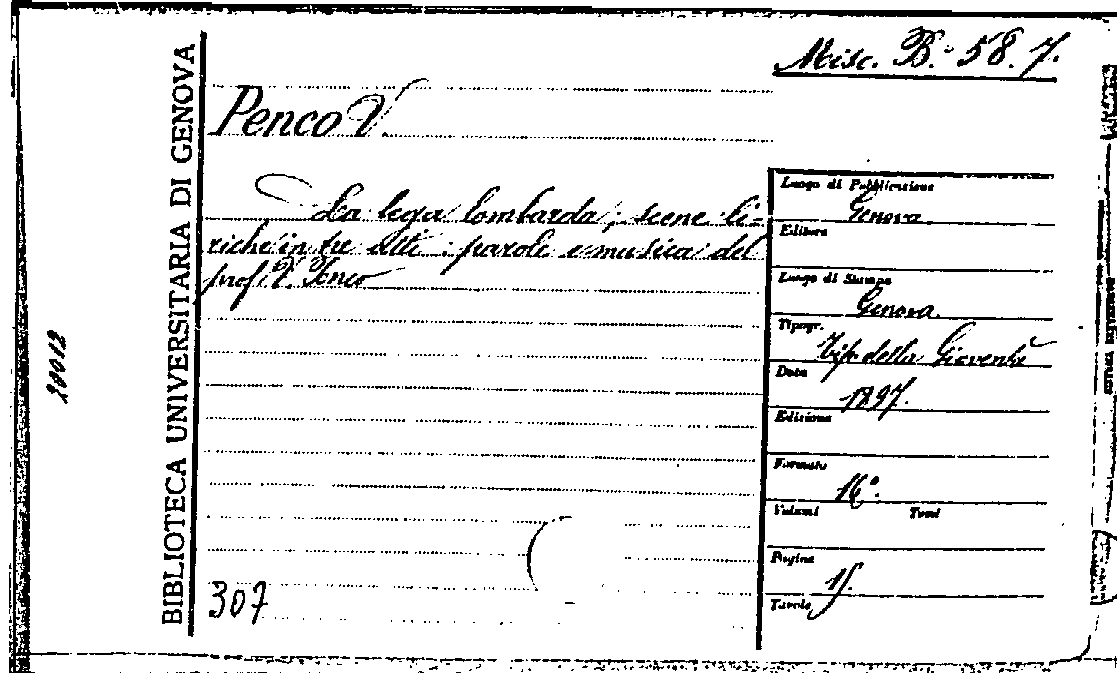 Misc. B. 58. 7.
BIBLIOTECA UNIVERSITARIA DI GENOVA
Penco V.
La lega lombarda; scene li-
riche in tre atti: parole e musica del
prof. V. Penco
Luogo di Pubblicazione
Genova
Editore
Luogo di Stampa
Genova.
Tipogr.
Tip. della Gioventù
Data
1897.
Edizione
Formato
16°.
Volumi Tomi
Pagine
Tavole
307
20012